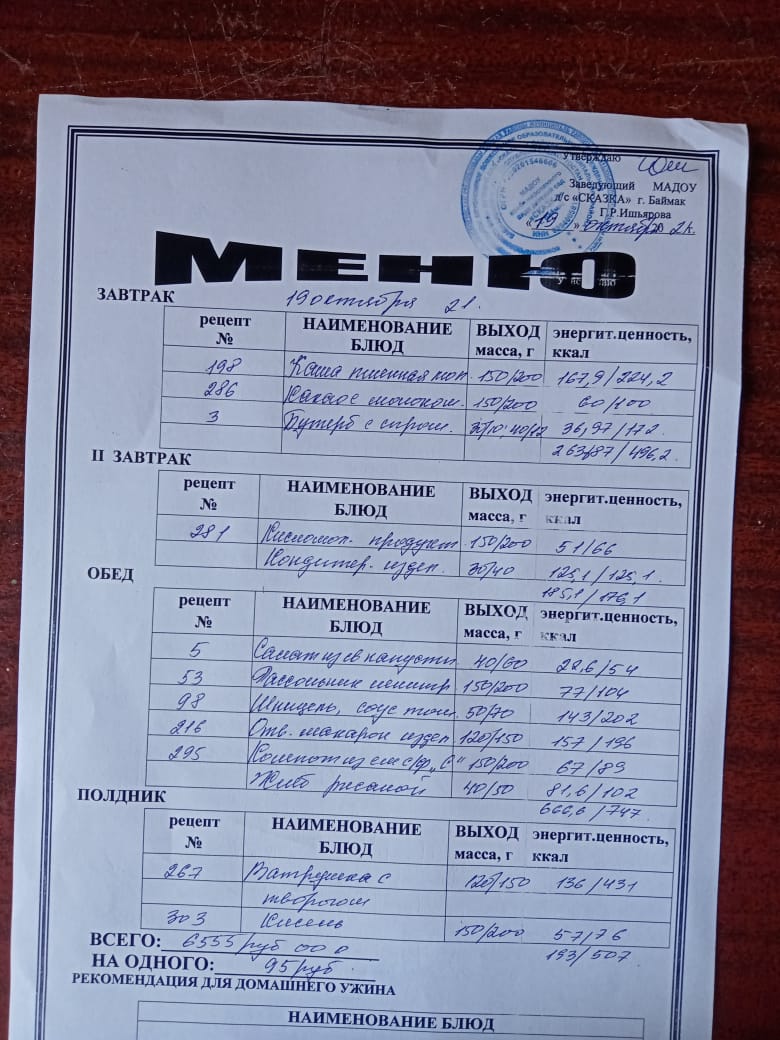 Утверждаю
Заведующий МАДОУ
д/с «СКАЗКА» г. Баймак
Г.Р.Ишьярова
« 19 » октября 20 21г.
МЕНЮ
ЗАВТРАК 19 октября 21.
рецепт № НАИМЕНОВАНИЕ БЛЮД ВЫХОД масса, г энергит.ценность, ккал
198 Каша пшенная мол. 150/200 167,9/224,2
286 Какао с молоком. 150/200 60/100
3 Бутерб с сыром. 36,97/172
263,87/496,2.
II ЗАВТРАК
рецепт № НАИМЕНОВАНИЕ БЛЮД ВЫХОД масса, г энергит.ценность, ккал
281 Кисломол. продукт 150/200 51/66
Кондитер. издел. 30/40 125,1/125,1.
ОБЕД
рецепт № НАИМЕНОВАНИЕ БЛЮД ВЫХОД масса, г энергит.ценность, ккал
5 Салат из св капусты 40/60 22,6/54
53 Рассольник ленингр 150/200 77/104
98 Шницель, соус том. 50/70 143/202
216 Отв. макарон издел 120/150 157/196
295 Компот из см с/ф „С" 150/200 67/89
Хлеб ржаной 40/50 81,6/102
666,6/747.
ПОЛДНИК
рецепт № НАИМЕНОВАНИЕ БЛЮД ВЫХОД масса, г энергит.ценность, ккал
267 Ватрушка с 120/150 136/431
творогом
303 Кисель 150/200 57/76
193/507
ВСЕГО: 6555 руб 00
НА ОДНОГО: 95 руб.
РЕКОМЕНДАЦИЯ ДЛЯ ДОМАШНЕГО УЖИНА
НАИМЕНОВАНИЕ БЛЮД